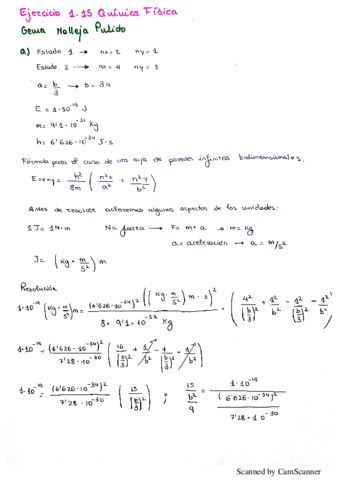 Ejercicio 1.15 Química Física
Gema Molleja Pulido
a) Estado 1 → nx = 1 ny = 1
Estado 2 → nx = 4 ny = 1
a = b/3 → b = 3a
E = 1·10^-19 J
m = 9'1·10^-31 Kg
h = 6'626·10^-34 J·s
Fórmula para el caso de una caja de paredes infinitas bidimensionales.
E nx ny = h²/8m (n²x/a² + n²y/b²)
Antes de resolver aclaremos algunos aspectos de las unidades:
1J = 1N·m N = fuerza → F = m·a → m = kg
a = aceleración → a = m/s²
J = (Kg·m/s²) m
Resolución
1·10^-19 (Kg·m/s²) m = (6'626·10^-34)² ((Kg·m/s²) m·s)² / 8·9'1·10^-31 Kg · (4²/(b/3)² + 1²/b² - 1²/(b/3)² - 1²/b²)
1·10^-19 = (6'626·10^-34)² / 7'28·10^-30 (16/(b/3)² + 1/b² - 1/(b/3)² - 1/b²)
1·10^-19 = (6'626·10^-34)² / 7'28·10^-30 (15/(b/3)²) ; 15/(b²/9) = 1·10^-19 / ((6'626·10^-34)² / 7'28·10^-30)
Scanned by CamScanner